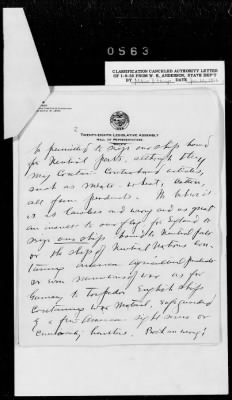 0563
CLASSIFICATION CANCELLED AUTHORITY LETTER
OF 1-8-58 FROM W. H. ANDERSON, STATE DEP'T
BY DATE
2
TWENTY-EIGHTH LEGISLATIVE ASSEMBLY
HALL OF REPRESENTATIVES
is permitted to seize our ships bound
for Neutral ports, although they
may contain Contraband articles,
such as meats, wheat, cotton,
all farm products. We believe it
is as lawless and wrong and as great
an insult to our flag for England to
seize our ships bound to Neutral ports
or the ships of Neutral Nations con-
taining American agricultural products
or even munitions of war as for
Germany to Torpedo English ships
containing war material, safeguarded
by a few American sight seers or
cowardly hustlers. Both are wrong;